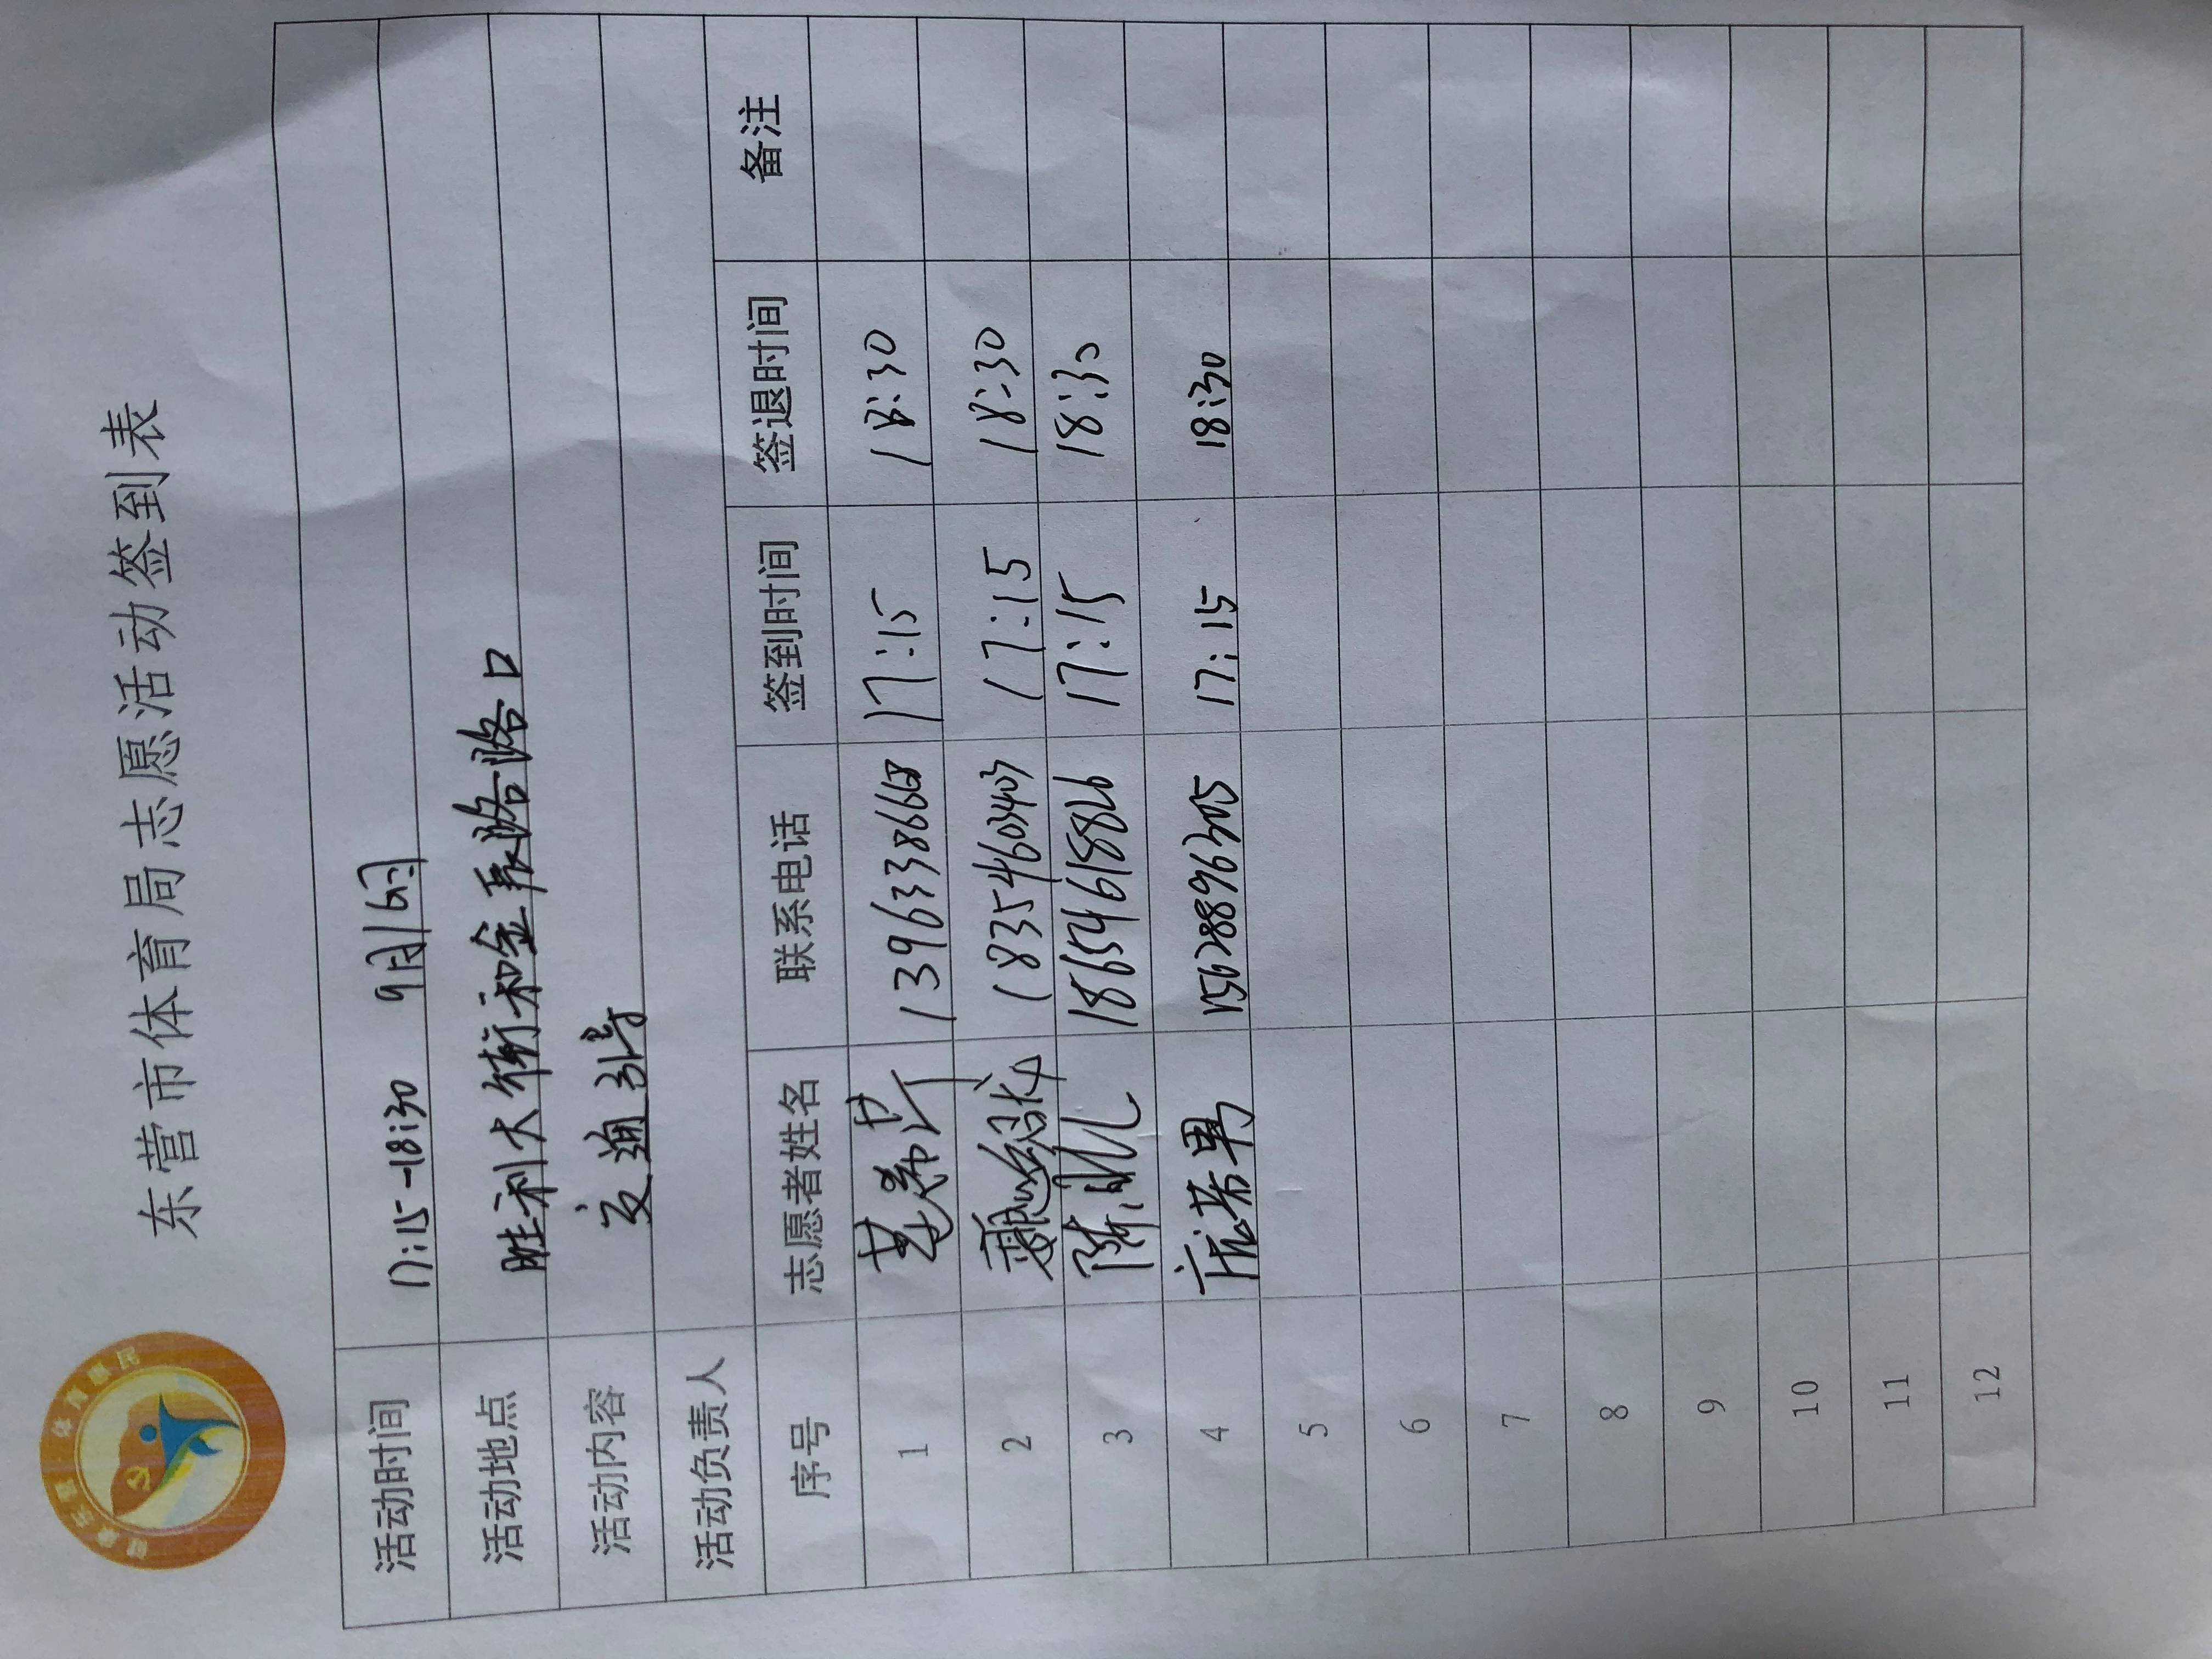 健康东营 体育惠民
东营市体育局志愿活动签到表
活动时间 17:15-18:30 9月16日
活动地点 胜利大街和金辰路路口
活动内容 交通引导
活动负责人
序号 志愿者姓名 联系电话 签到时间 签退时间 备注
1 17:15 18:30
2 18354603403 17:15 18:30
3 陈 18654615886 17:15 18:30
4 庞若男 15628896305 17:15 18:30
5
6
7
8
9
10
11
12